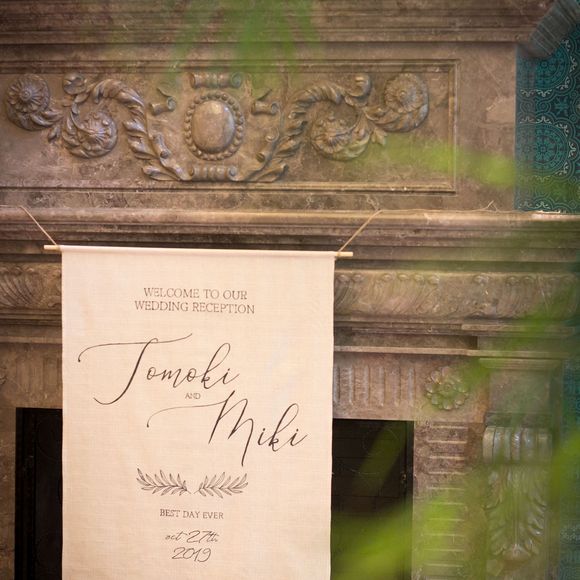 WELCOME TO OUR
WEDDING RECEPTION
Tomoki
AND
Miki
BEST DAY EVER
oct 27th
2019